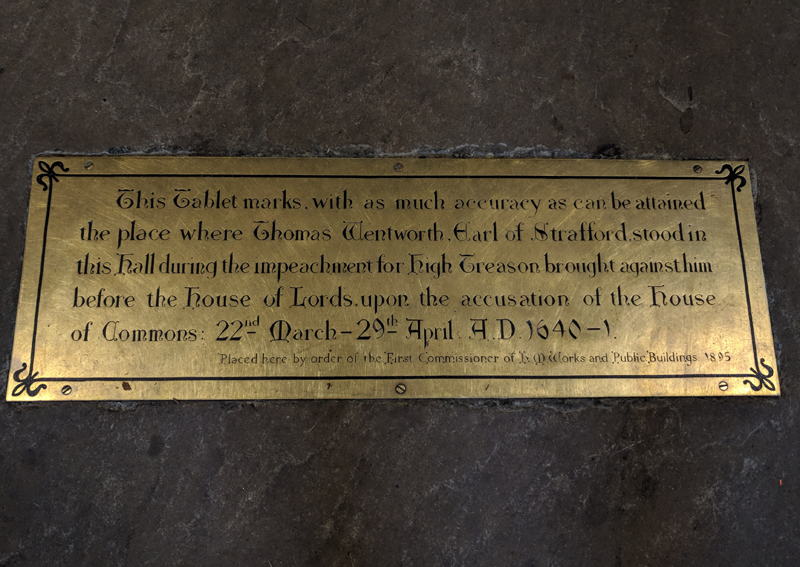 This Tablet marks, with as much accuracy as can be attained
the place where Thomas Wentworth, Earl of Strafford, stood in
this Hall during the impeachment for High Treason brought against him
before the House of Lords, upon the accusation of the House
of Commons: 22nd March – 29th April. A.D. 1640–1.
Placed here by order of the First Commissioner of H.M. Works and Public Buildings 1895